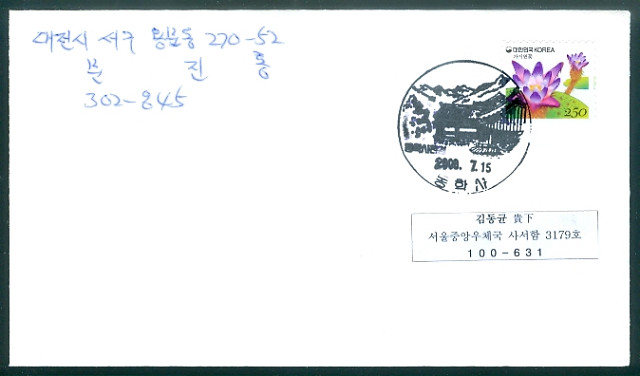 대전시 서구 용문동 270-52
문 진 홍
302-845
대한민국 KOREA
가시연꽃
250
2008. 7. 15
동학사
김동균 貴下
서울중앙우체국 사서함 3179호
100-631